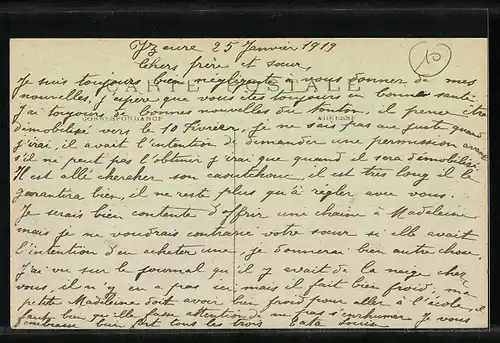 Yzeure 25 Janvier 1919
Chers frère et sœur,
Je suis toujours bien négligente à vous donner de mes
CARTE POSTALE
nouvelles, j'espère que vous êtes toujours en bonne santé.
J'ai toujours de bonnes nouvelles du tonton, il pense être
CORRESPONDANCE ADRESSE
démobilisé vers le 10 Février, je ne sais pas au juste quand
j'irai, il avait l'intention de demander une permission avant
s'il ne peut pas l'obtenir j'irai que quand il sera démobilisé
Il est allé chercher son caoutchouc, il est très long il le
garantira bien, il ne reste plus qu'à régler avec vous.
Je serais bien contente d'offrir une chaîne à Madeleine
mais je ne voudrais contrarié votre sœur si elle avait
l'intention d'en acheter une, je donnerai bien autre chose.
J'ai vu sur le journal qu'il y avait de la neige chez
vous, il n'y en a pas ici, mais il fait bien froid, ma
petite Madeleine doit avoir bien froid pour aller à l'école, il
faut bien qu'elle fasse attention de ne pas s'enrhumer. Je vous
embrasse bien fort tous les trois Tata Louise
10